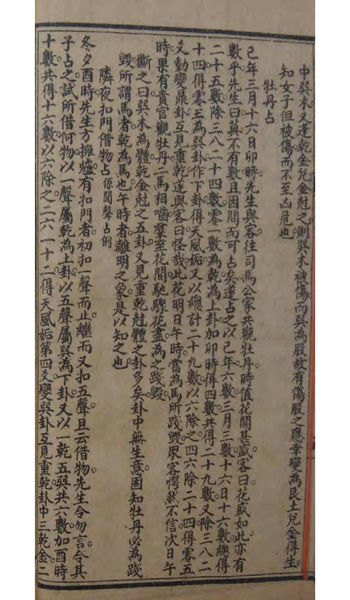 中巽木又逢乾金兌金尅之則巽木被傷而巽為股故有傷股之應幸變為艮土兌金得生
知女子但被傷而不至凶危也
牡丹占
己年三月十六日卯時先生與客往司馬公家共觀牡丹時值花開甚盛客曰花盛如此亦有
數乎先生曰莫不有數且因問而可占矣遂占之以己年六數三月三數十六日十六數總得
二十五數除三八二十四數零一數為乾為上卦加卯時得四數共得二十九數又除三八二
十四得零五為巽卦作下卦得天風姤又以總計二十九數以六除之四六除二十四得零五
爻動變鼎卦互見重乾遂與客曰怪哉此花明日午時當為馬所踐毀眾客愕然不信次日午
時果有貴官觀牡丹二馬相嚙羣至花間馳驟花盡為之踐毀
斷之曰巽木為體乾金尅之互卦又見重乾尅體之卦多矣卦中無生意固知牡丹必為踐
毀所謂馬者乾為馬也午時者離明之象是以知之也
隣夜扣門借物占 係聞聲占例
冬夕酉時先生方擁爐有扣門者初扣一聲而止繼而又扣五聲且云借物先生令勿言令其
子占之試所借何物以一聲屬乾為上卦以五聲屬巽為下卦又以一乾五巽共六數加酉時
十數共得十六數以六除之二六一十二得天風姤第四爻變巽卦互見重乾卦中三乾金二